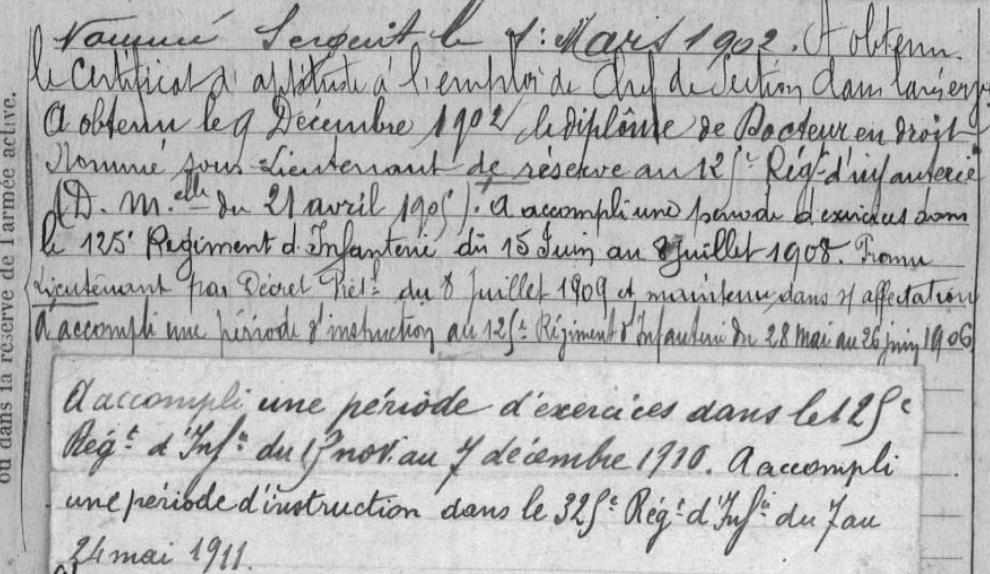 Nommé Sergent le 1: Mars 1902. A obtenu
le certificat d'aptitude à l'emploi de Chef de Section dans la réserve
A obtenu le 9 Décembre 1902 le diplôme de Docteur en droit
Nommé sous-Lieutenant de réserve au 125e Régt d'infanterie
(D. M.elle du 21 avril 1905). A accompli une période d'exercices dans
le 125e Régiment d'Infanterie du 15 Juin au 8 Juillet 1908. Promu
Lieutenant par Décret Prést du 8 Juillet 1909 et maintenu dans s/ affectation
A accompli une période d'instruction au 125e Régiment d'Infanterie du 28 mai au 26 juin 1906
A accompli une période d'exercices dans le 125e
Régt d'Infie du nov. au 7 décembre 1910. A accompli
une période d'instruction dans le 325e Régt d'Infie du 7 au
24 mai 1911.
ou dans la réserve de l'armée active.